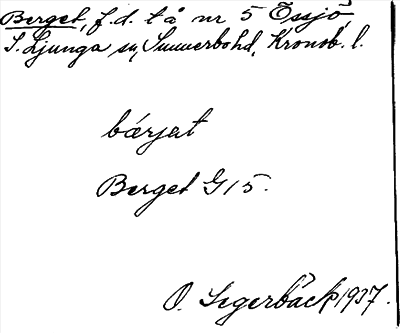 Berget, f.d. tå nr 5 Össjö,
S. Ljunga sn, Sunnerbohd, Kronob. l.
bærjat
Berget G 15.
O. Segerbäck 1937.